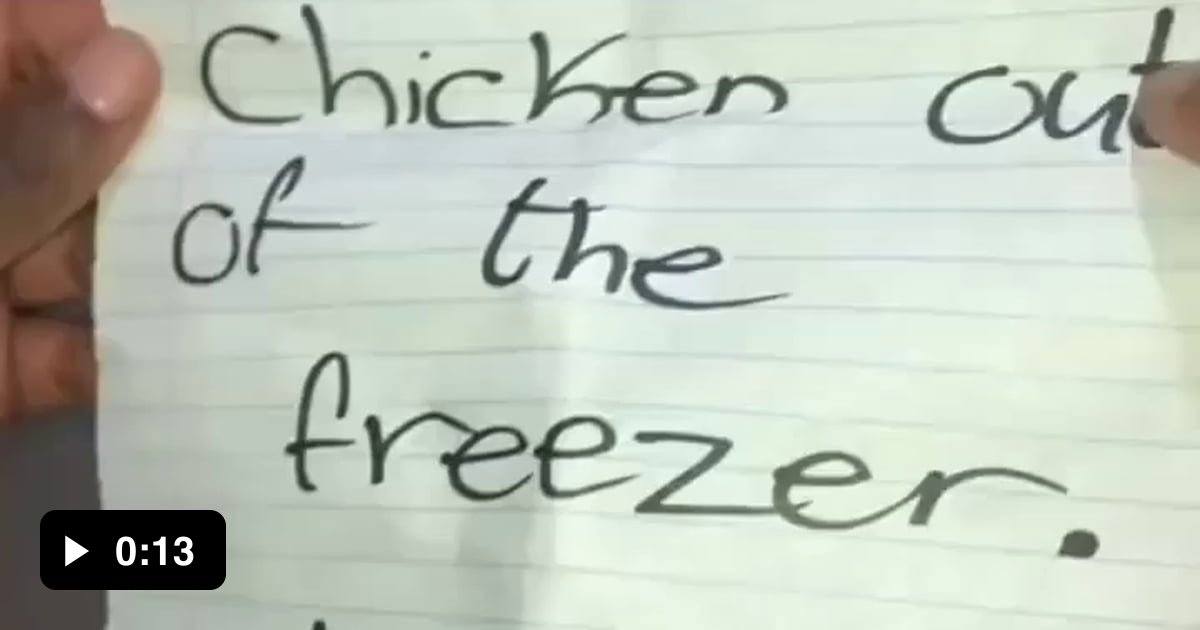 Chicken out
of the
freezer.
0:13